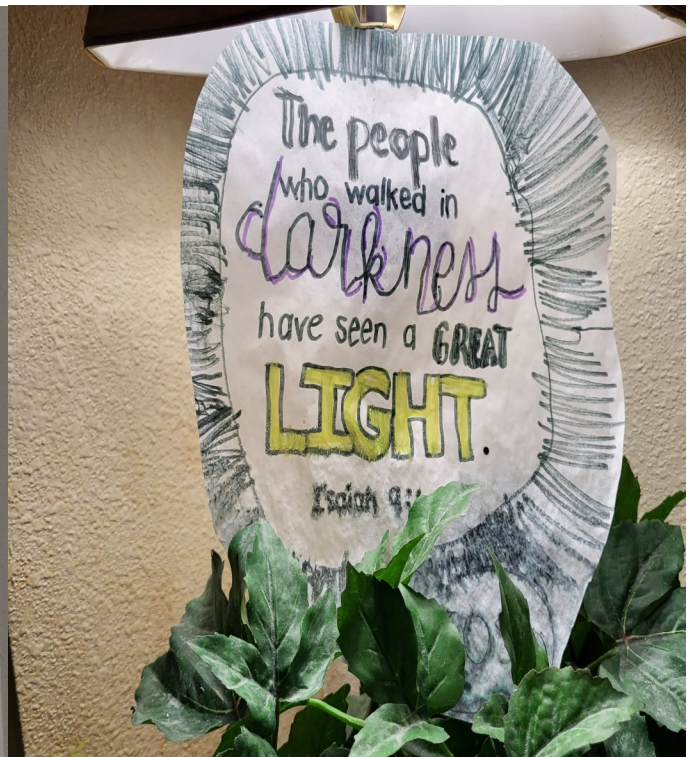 The people
who walked in
darkness
have seen a GREAT
LIGHT.
Isaiah 9: